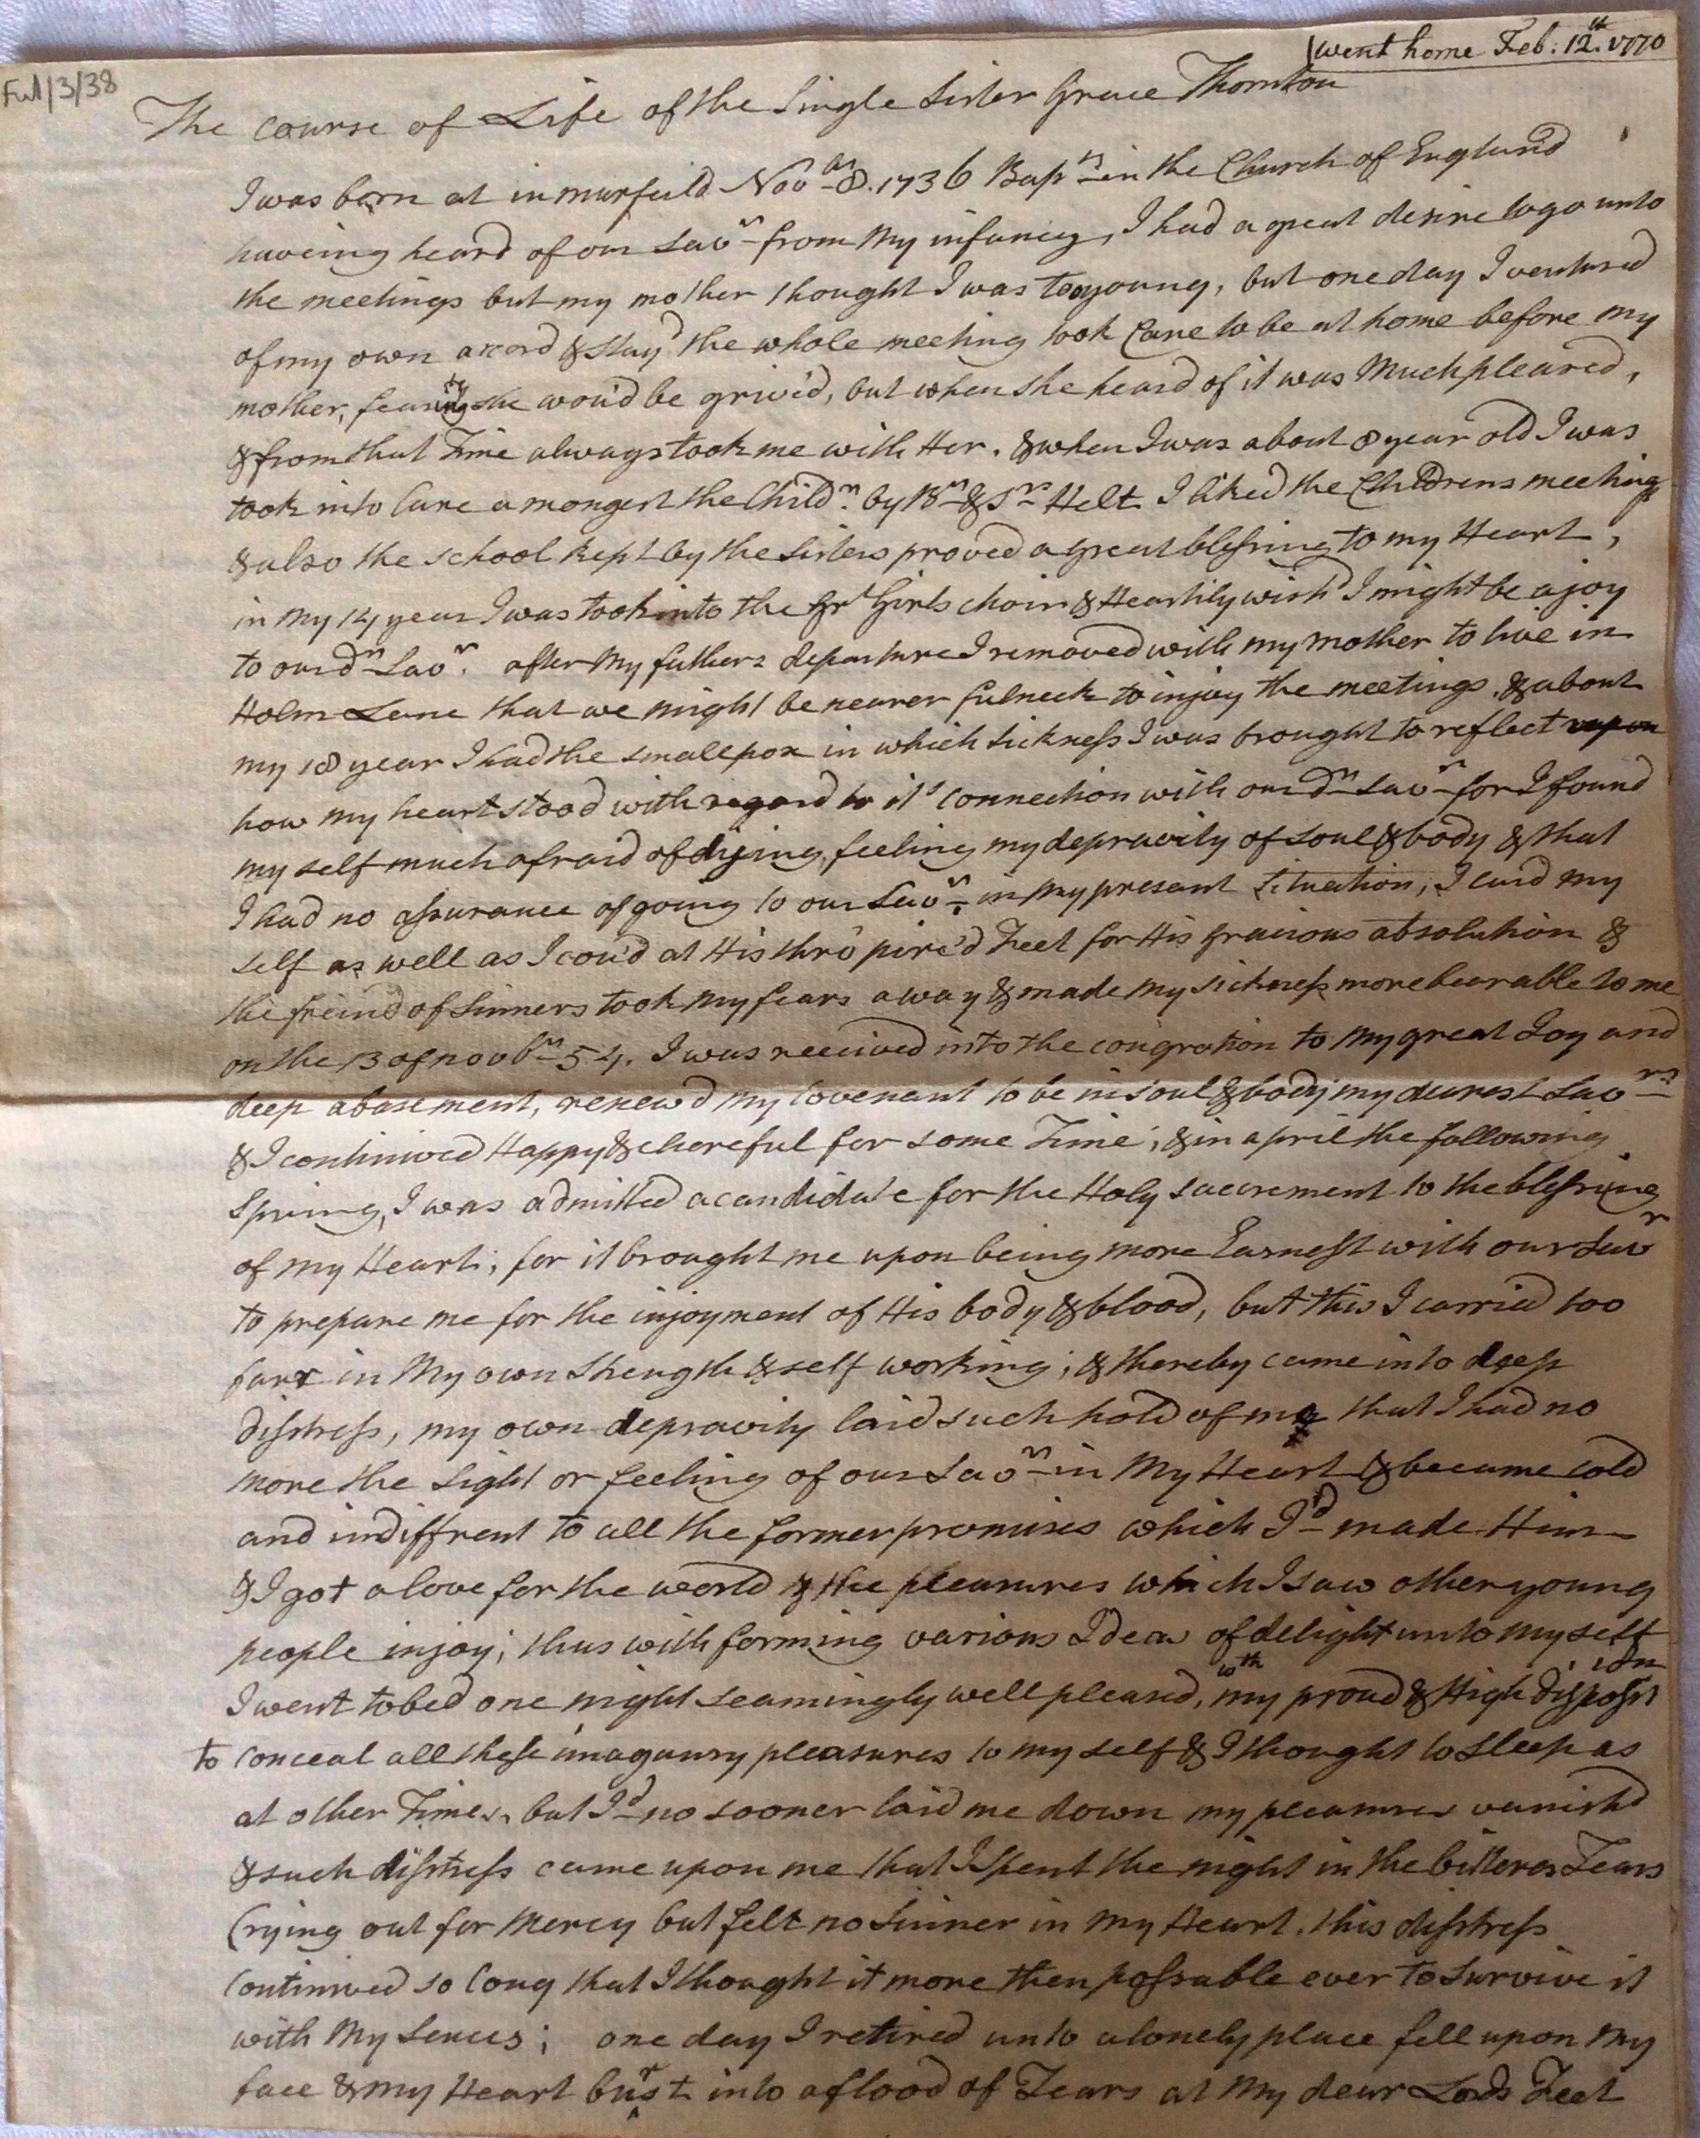 went home Feb: 12th. 1770
Ful/3/38
The course of Life of the Single Sister Grace Thornton
I was born at in murfeild Novbr 8. 1736 Bapd in the Church of England
haveing heard of our Savr from My infancy, I had a great desire to go unto
the meetings but my mother thought I was too young, but one day I ventured
of my own accord & stay'd the whole meeting took Care to be at home before my
mother, fearing she wou'd be griv'd, but when she heard of it was Much pleased,
& from that Time always took me with Her. & when I was about 8 year old I was
took into Care amongest the Childn. by Br & Sr Helt I liked the Childrens meetings
& also the school kept by the Sisters proved a great blessing to my Heart,
in my 14 year I was took into the Grt Girls choir & Heartily wish'd I might be a joy
to our dr Savr. after My fathers departure I removed with my mother to live in
Holm Lane that we might be nearer fulneck to injoy the meetings, & about
my 18 year I had the smallpox in which sickness I was brought to reflect upon
how my heart stood with regard to its connection with our dr Savr for I found
my self much afraid of dijing, feeling my depravity of soul & body & that
I had no assurance of going to our Savr in My presant situation, I laid my
self as well as I cou'd at His thro' pirc'd Feet for His gracious absolution &
the freind of sinners took My fears away & made my sickness more bearable to me
on the 13 of novbr 54. I was received into the congration to My great Joy and
deep abasement, renew'd my Covenant to be in soul & body my dearest Savrs
& I continiwed Happy & chereful for some Time, & in april the following
Spring, I was admitted a candidate for the Holy sacrement to the blessing
of my Heart; for it brought me upon being more Earnest with our Savr
to prepare me for the injoyment of His body & blood, but this I carried too
farr in My own Strength & self working; & thereby came into deep
disstress, my own depravity laid such hold of me that I had no
more the Sight or feeling of our Savr in My Heart & became cold
and indiffrent to all the former promises which I'd made Him
& I got a love for the world & the pleasures which I saw other young
people injoy; thus with forming various Ideas of delight unto My self
I went to bed one night seamingly well pleased, wth my proud & High disposition
to conceal all these imaganry pleasures to my self & I thought to sleep as
at other Times, but I'd no sooner laid me down my pleasures vanish'd
& such disstress came upon me that I spent the night in the bitteres Tears
Crying out for Mercy but felt no Sinner in My Heart. this disstress
Continiwed so long that I thought it more then possable ever to Survive it
with My Sences; one day I retired unto a lonely place fell upon My
face & my Heart burst into a flood of Tears at My dear Lords Feet